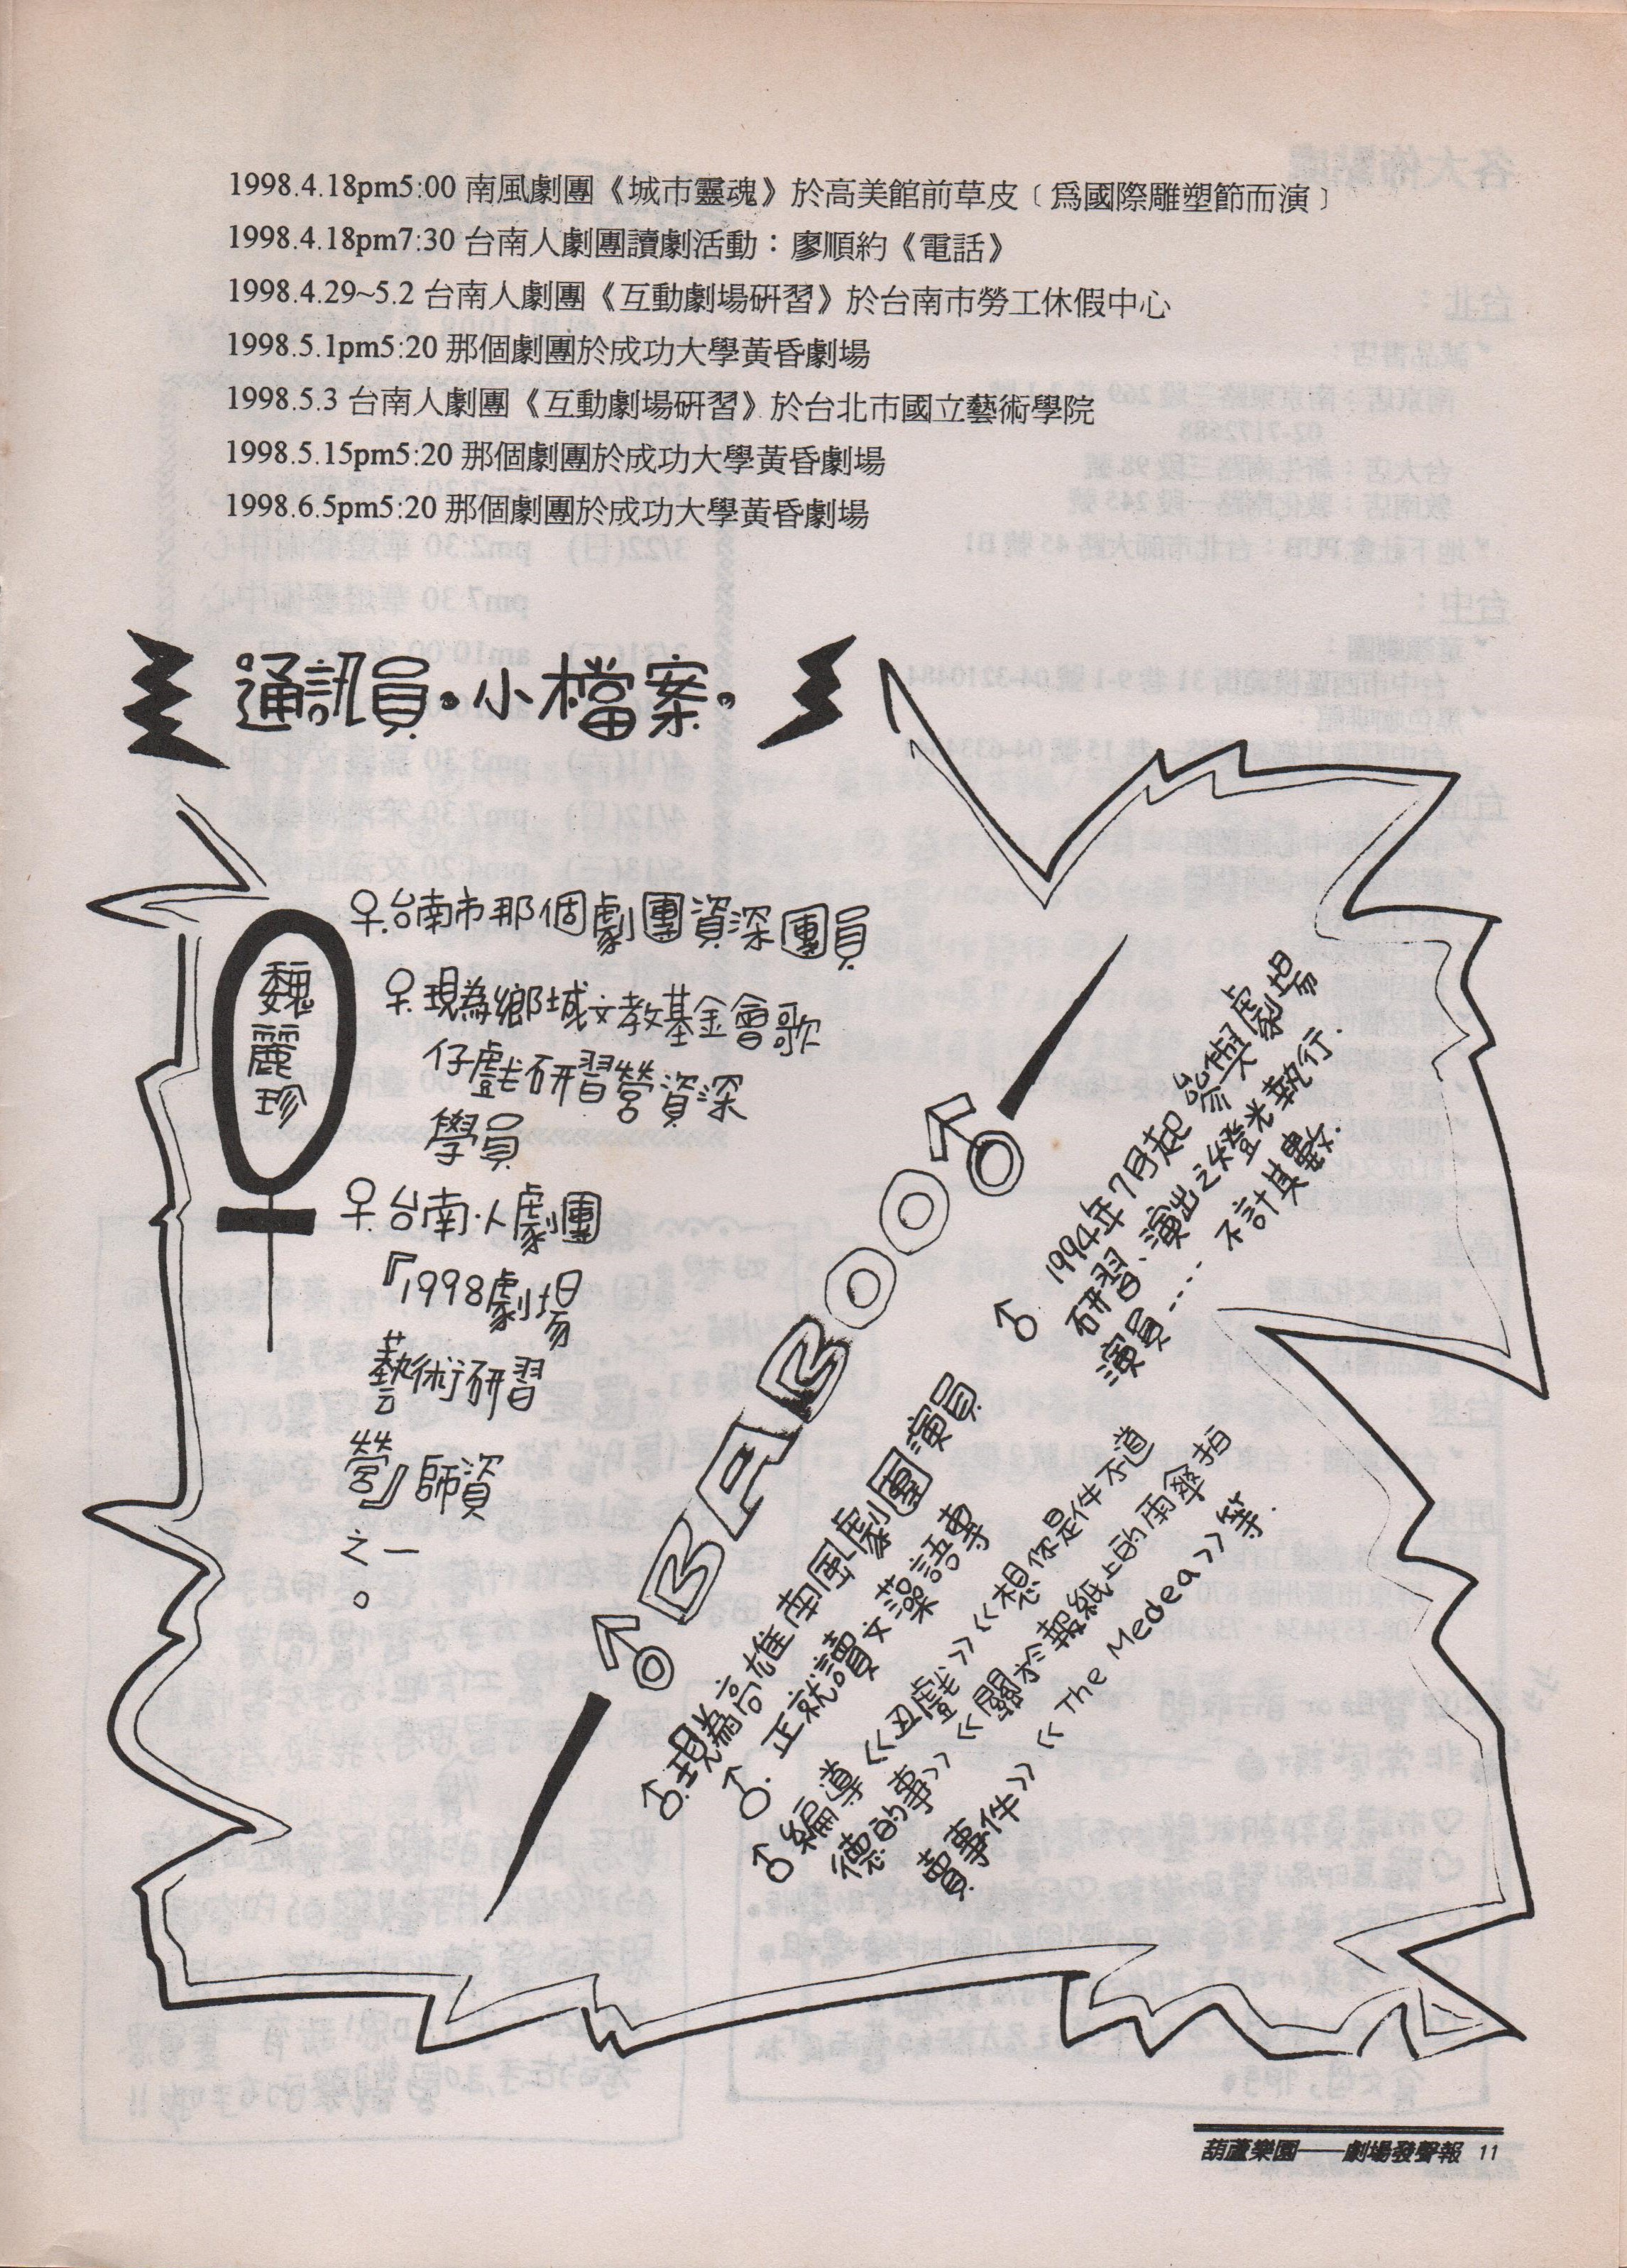 1998.4.18pm5:00 南風劇團《城市靈魂》於高美館前草皮〔爲國際雕塑節而演〕
1998.4.18pm7:30 台南人劇團讀劇活動：廖順約《電話》
1998.4.29~5.2 台南人劇團《互動劇場研習》於台南市勞工休假中心
1998.5.1pm5:20 那個劇團於成功大學黃昏劇場
1998.5.3 台南人劇團《互動劇場研習》於台北市國立藝術學院
1998.5.15pm5:20 那個劇團於成功大學黃昏劇場
1998.6.5pm5:20 那個劇團於成功大學黃昏劇場
通訊員。小檔案。
魏麗珍
♀.台南市那個劇團資深團員
♀.現為鄉城文教基金會歌
仔戲研習營資深
學員
♀.台南.人劇團
『1998劇場
藝術研習
營』師資
之一
。
♂BABOO♂
♂.現為高雄南風劇團演員
♂.正就讀文藻語專
♂編導《丑戲》《想你是件不道
德的事》《關於報紙上的雨傘拍
賣事件》《The Medea》等.
♂ 1994年7月起參與劇場
研習、演出之燈光執行.
演員……不計其數.
葫蘆樂園——劇場發聲報 11